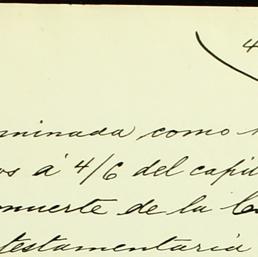 4
minada como
os á 4/6 del capi
muerte de la
testamentaria